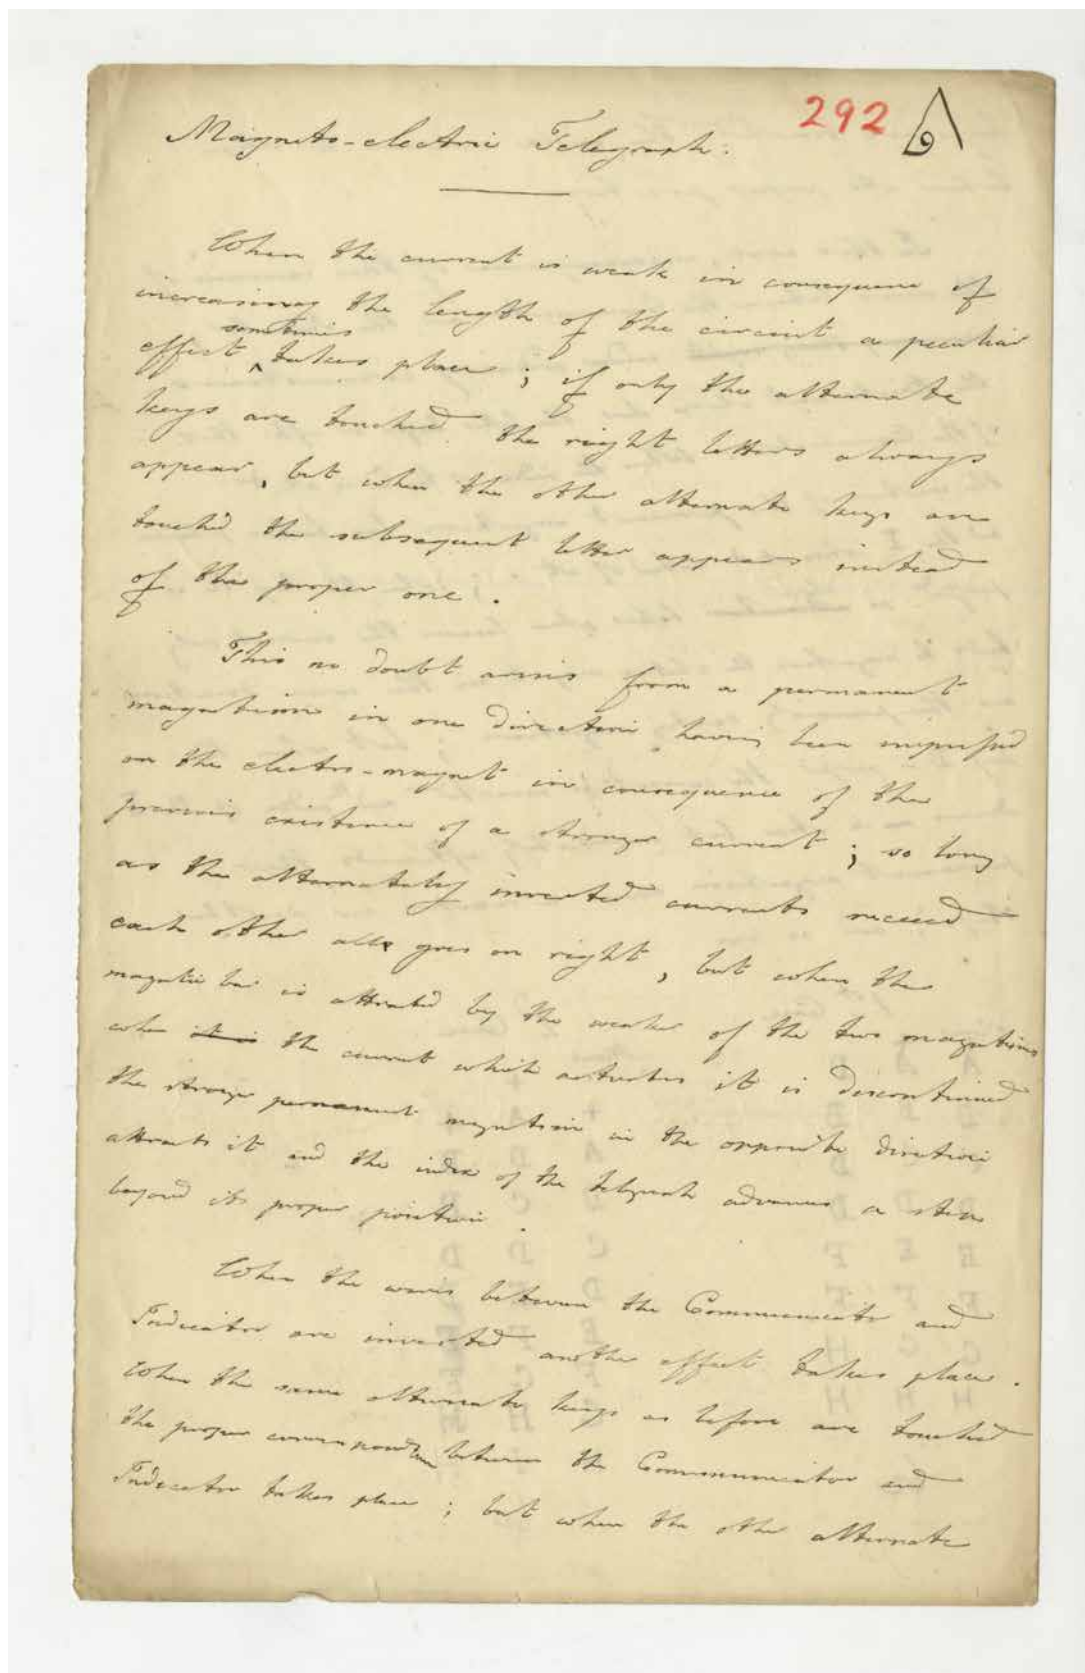 292
Magneto-electric Telegraph.
When the current is weak in consequence of
increasing the length of the circuit a peculiar
sometimes
effect ^ takes place ; if only the alternate
keys are touched the right letters always
appear, but when the other alternate keys are
touched the subsequent letter appears instead
of the proper one.
This no doubt arises from a permanent
magnetism in one direction, having been impressed
on the electro-magnet in consequence of the
previous existence of a stronger current ; so long
as the alternately inverted currents succeed
each other all goes on right, but when the
magnetic bar is attracted by the weaker of the two magnetisms
when it is the current which actuates it is discontinued
the stronger permanent magnetism in the opposite direction
attracts it and the index of the telegraph advances a step
beyond its proper position.
When the wires between the Communicator and
Indicator are inverted another effect takes place.
When the same alternate keys as before are touched
the proper correspondence between the Communicator and
Indicator takes place ; but when the other alternate